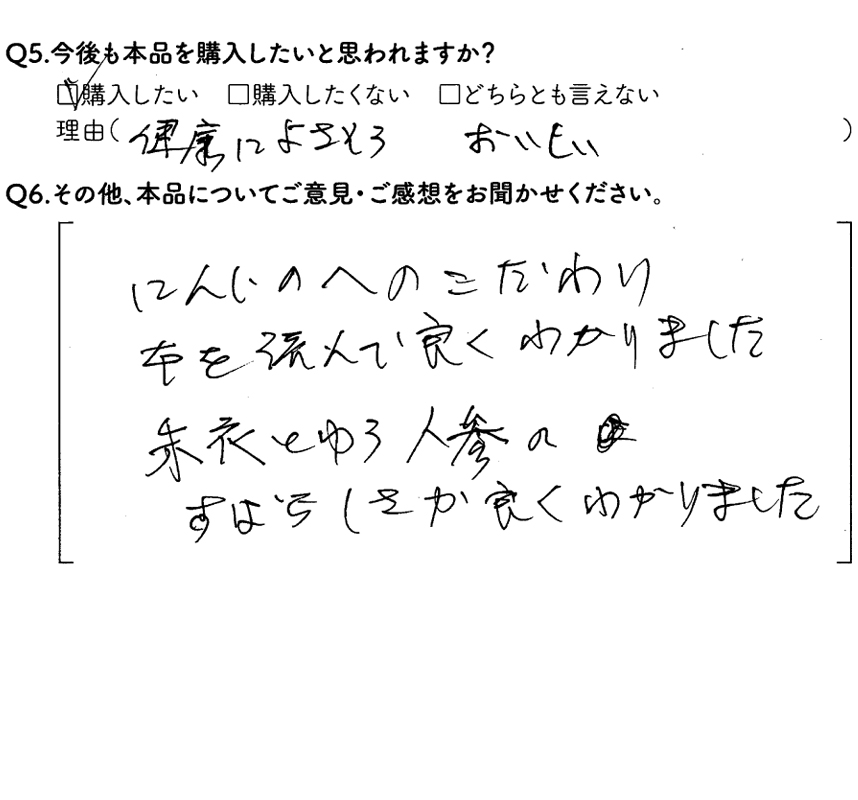 Q5.今後も本品を購入したいと思われますか?
☑購入したい □購入したくない □どちらとも言えない
理由(健康によさそう おいしい)
Q6.その他、本品についてご意見・ご感想をお聞かせください。
にんじんへのこだわり
本を読んで良くわかりました
朱衣とゆう人参の
すばらしさが良くわかりました